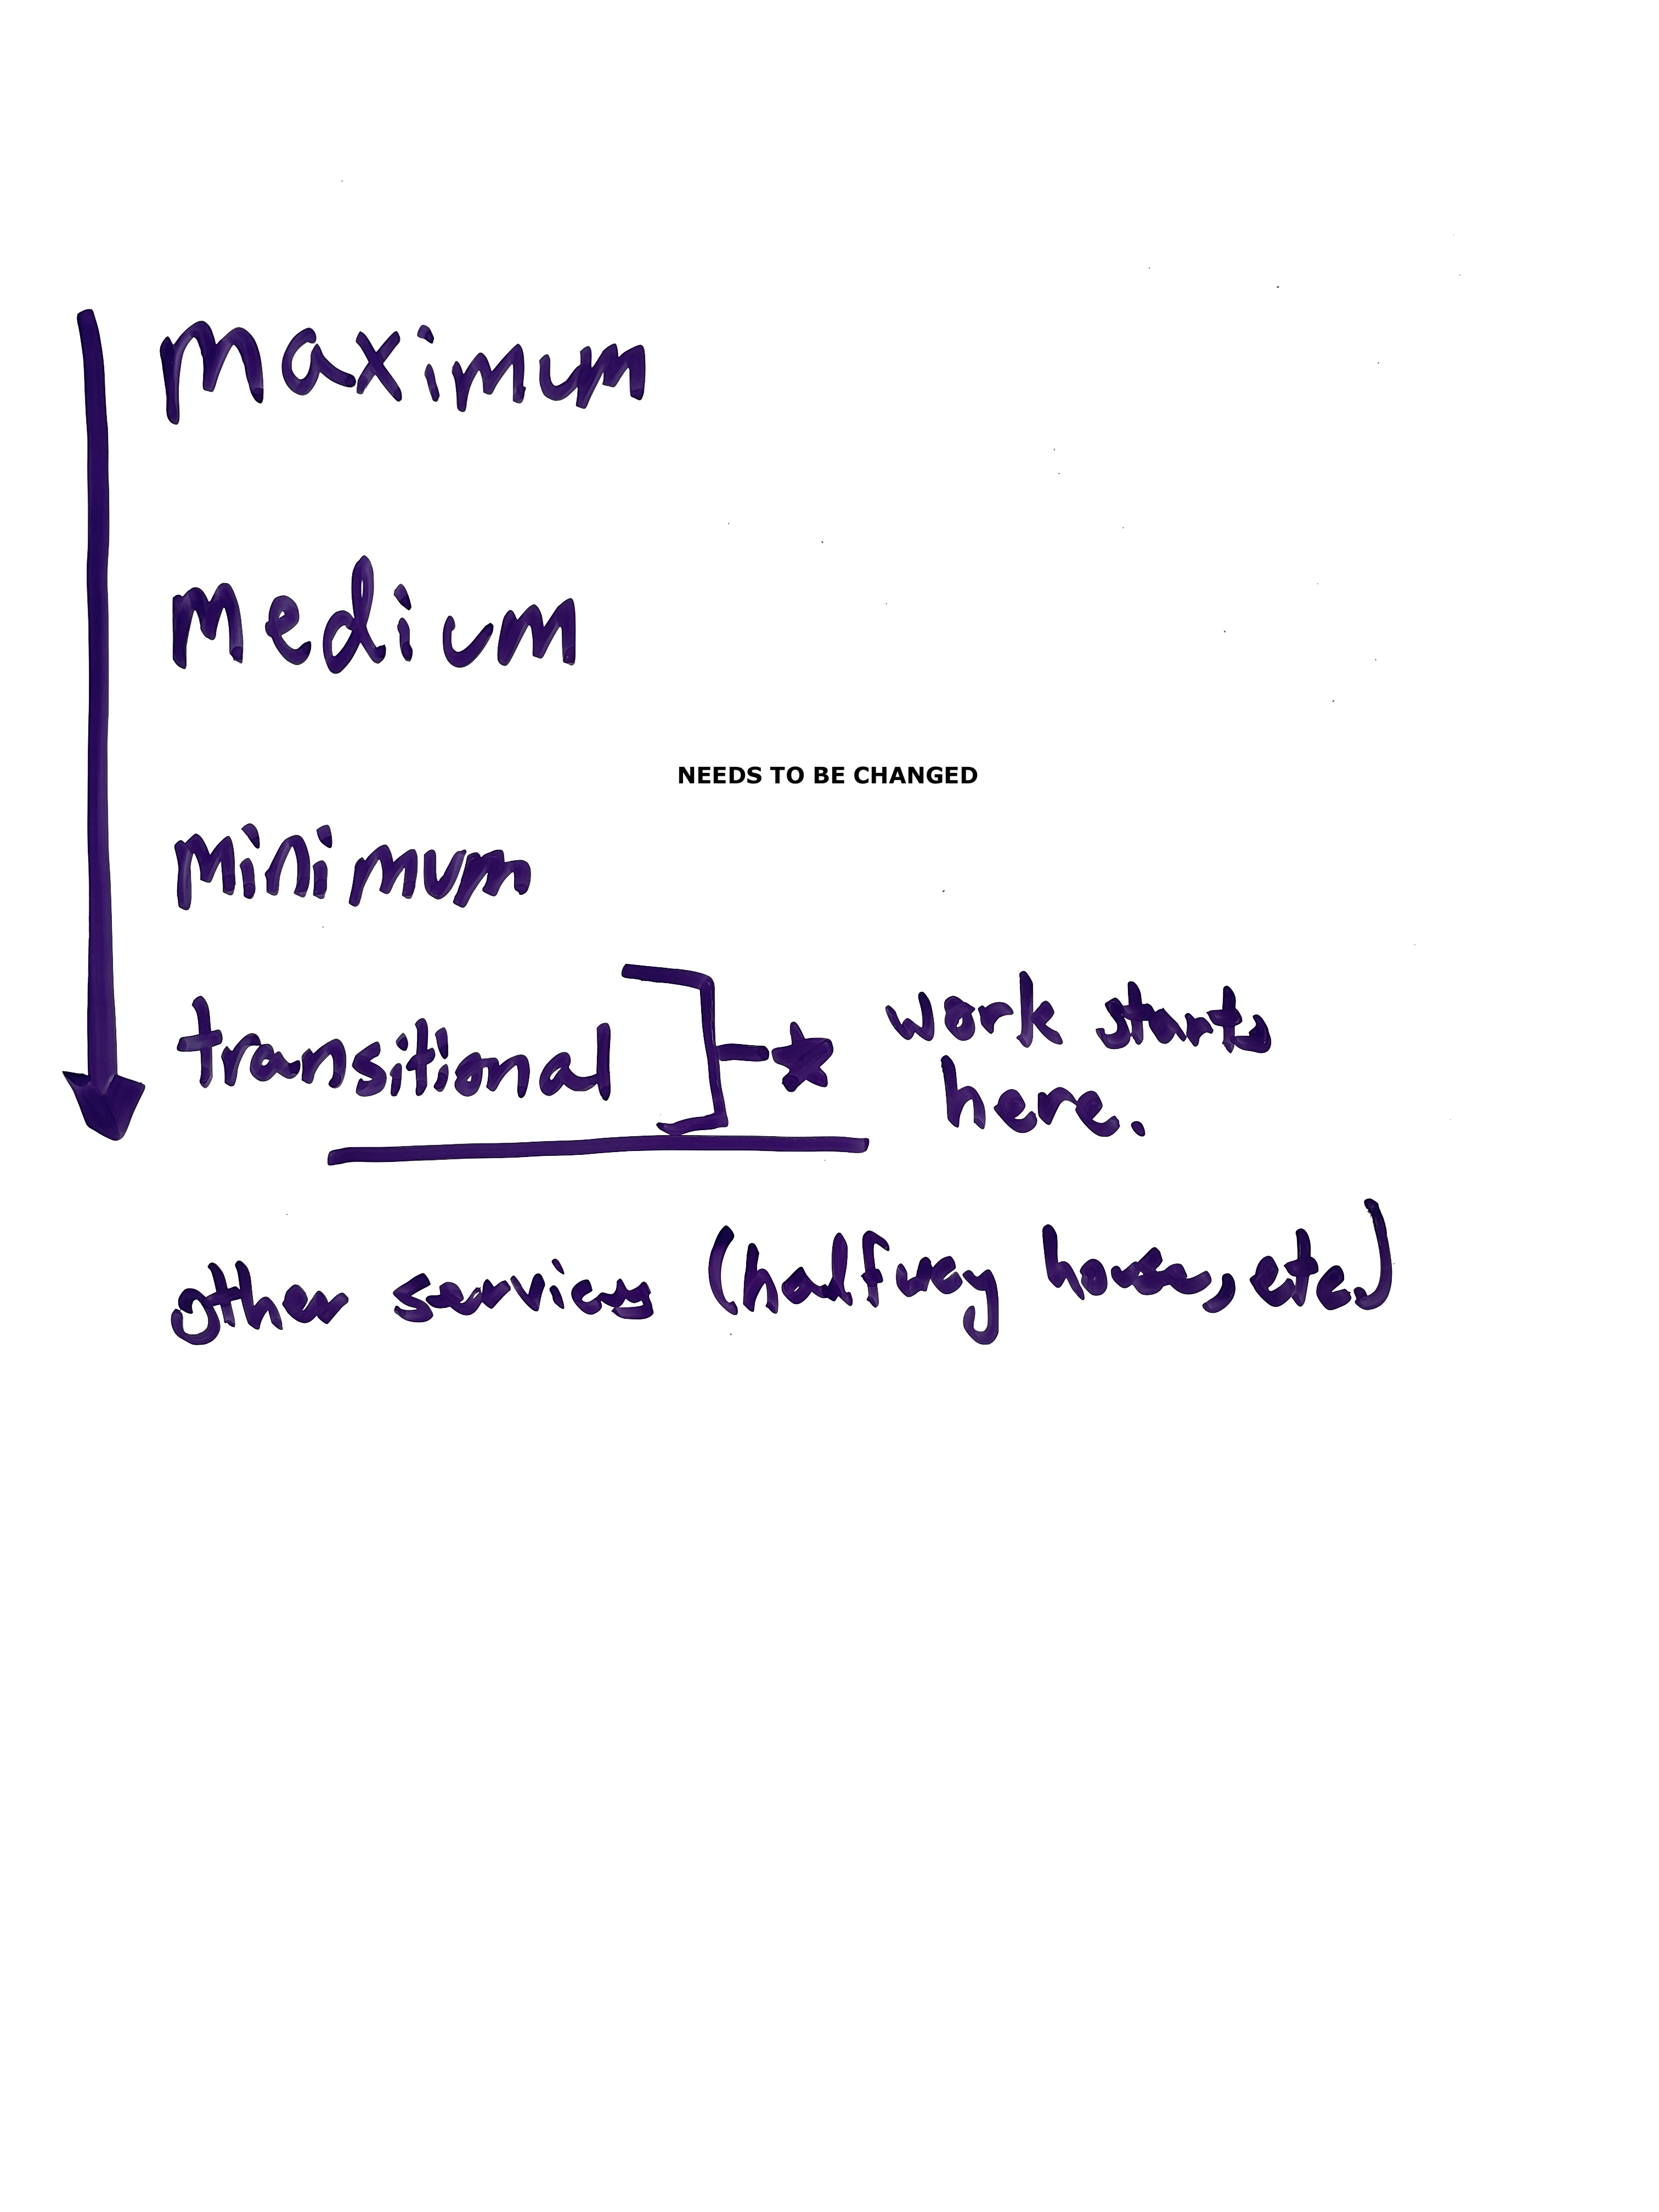 Maximum
Medium
NEEDS TO BE CHANGED
Minimum
transitional
work starts
here.
other services (halfway house, etc)